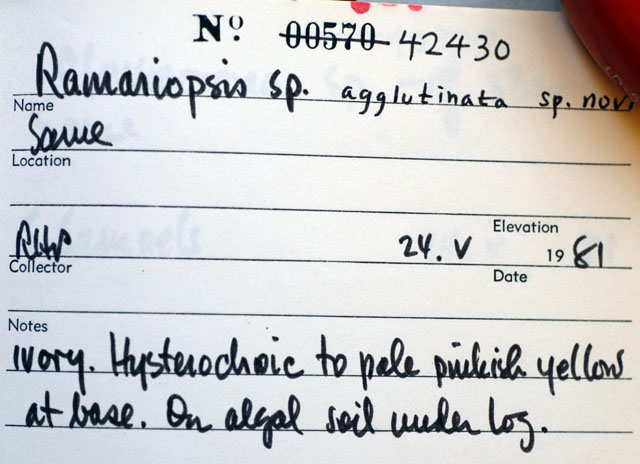 Nº 00570 42430
Ramariopsis sp. agglutinata sp. nov.
Name
Same
Location
Elevation
RHP 24. V 1981
Collector Date
Notes
ivory. Hysterochroic to pale pinkish yellow
at base. On algal soil under log.